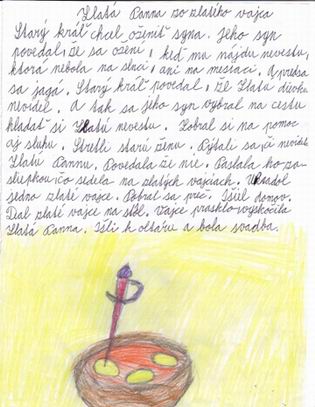 Zlatá Panna zo zlatého vajca
Starý kráľ chcel oženiť syna. Jeho syn
povedal, že sa ožení, keď mu nájdu nevestu,
ktorá nebola na slnci, ani na mesiaci. A predsa
sa jaga. Starý kráľ povedal, že Zlatú dievku
nevidel. A tak sa jeho syn vybral na cestu
hľadať si Zlatú nevestu. Zobral si na pomoc
aj sluhu. Stretli starú ženu. Pýtali sa, či nevidela
Zlatú Pannu. Povedala že nie. Poslala ho za
sliepkou, čo sedela na zlatých vajciach. Ukradol
jedno zlaté vajce. Pobral sa preč. Išiel domov.
Dal zlaté vajce na stôl. Vajce prasklo vyskočila
Zlatá Panna. Išli k oltáru a bola svadba.